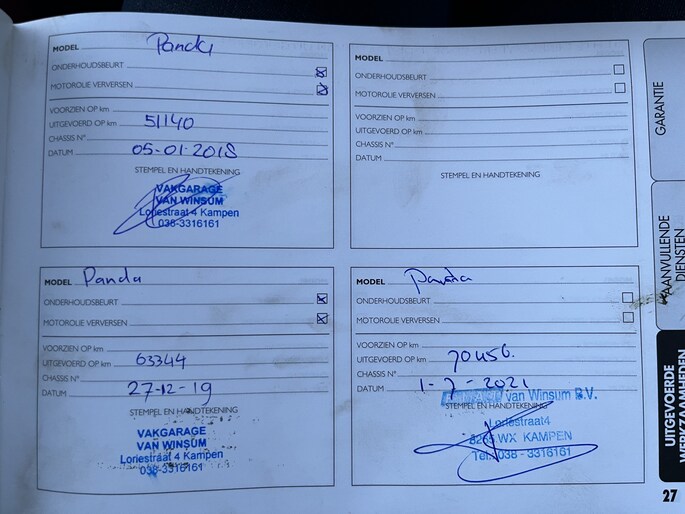 MODEL Panda
ONDERHOUDSBEURT
MOTOROLIE VERVERSEN
VOORZIEN OP km
UITGEVOERD OP km 51140
CHASSIS N°
DATUM 05-01-2018
STEMPEL EN HANDTEKENING
VAKGARAGE
VAN WINSUM
Loriestraat 4 Kampen
038-3316161
MODEL
ONDERHOUDSBEURT
MOTOROLIE VERVERSEN
VOORZIEN OP km
UITGEVOERD OP km
CHASSIS N°
DATUM
STEMPEL EN HANDTEKENING
MODEL Panda
ONDERHOUDSBEURT
MOTOROLIE VERVERSEN
VOORZIEN OP km
UITGEVOERD OP km 63344
CHASSIS N°
DATUM 27-12-19
STEMPEL EN HANDTEKENING
VAKGARAGE
VAN WINSUM
Loriestraat 4 Kampen
038-3316161
MODEL Panda
ONDERHOUDSBEURT
MOTOROLIE VERVERSEN
VOORZIEN OP km
UITGEVOERD OP km 70456.
CHASSIS N°
DATUM 1-7-2021
van Winsum B.V.
STEMPEL EN HANDTEKENING
Loriestraat 4
WX KAMPEN
Tel. 038 - 3316161
GARANTIE
AANVULLENDE
DIENSTEN
UITGEVOERDE
WERKZAAMHEDEN
27